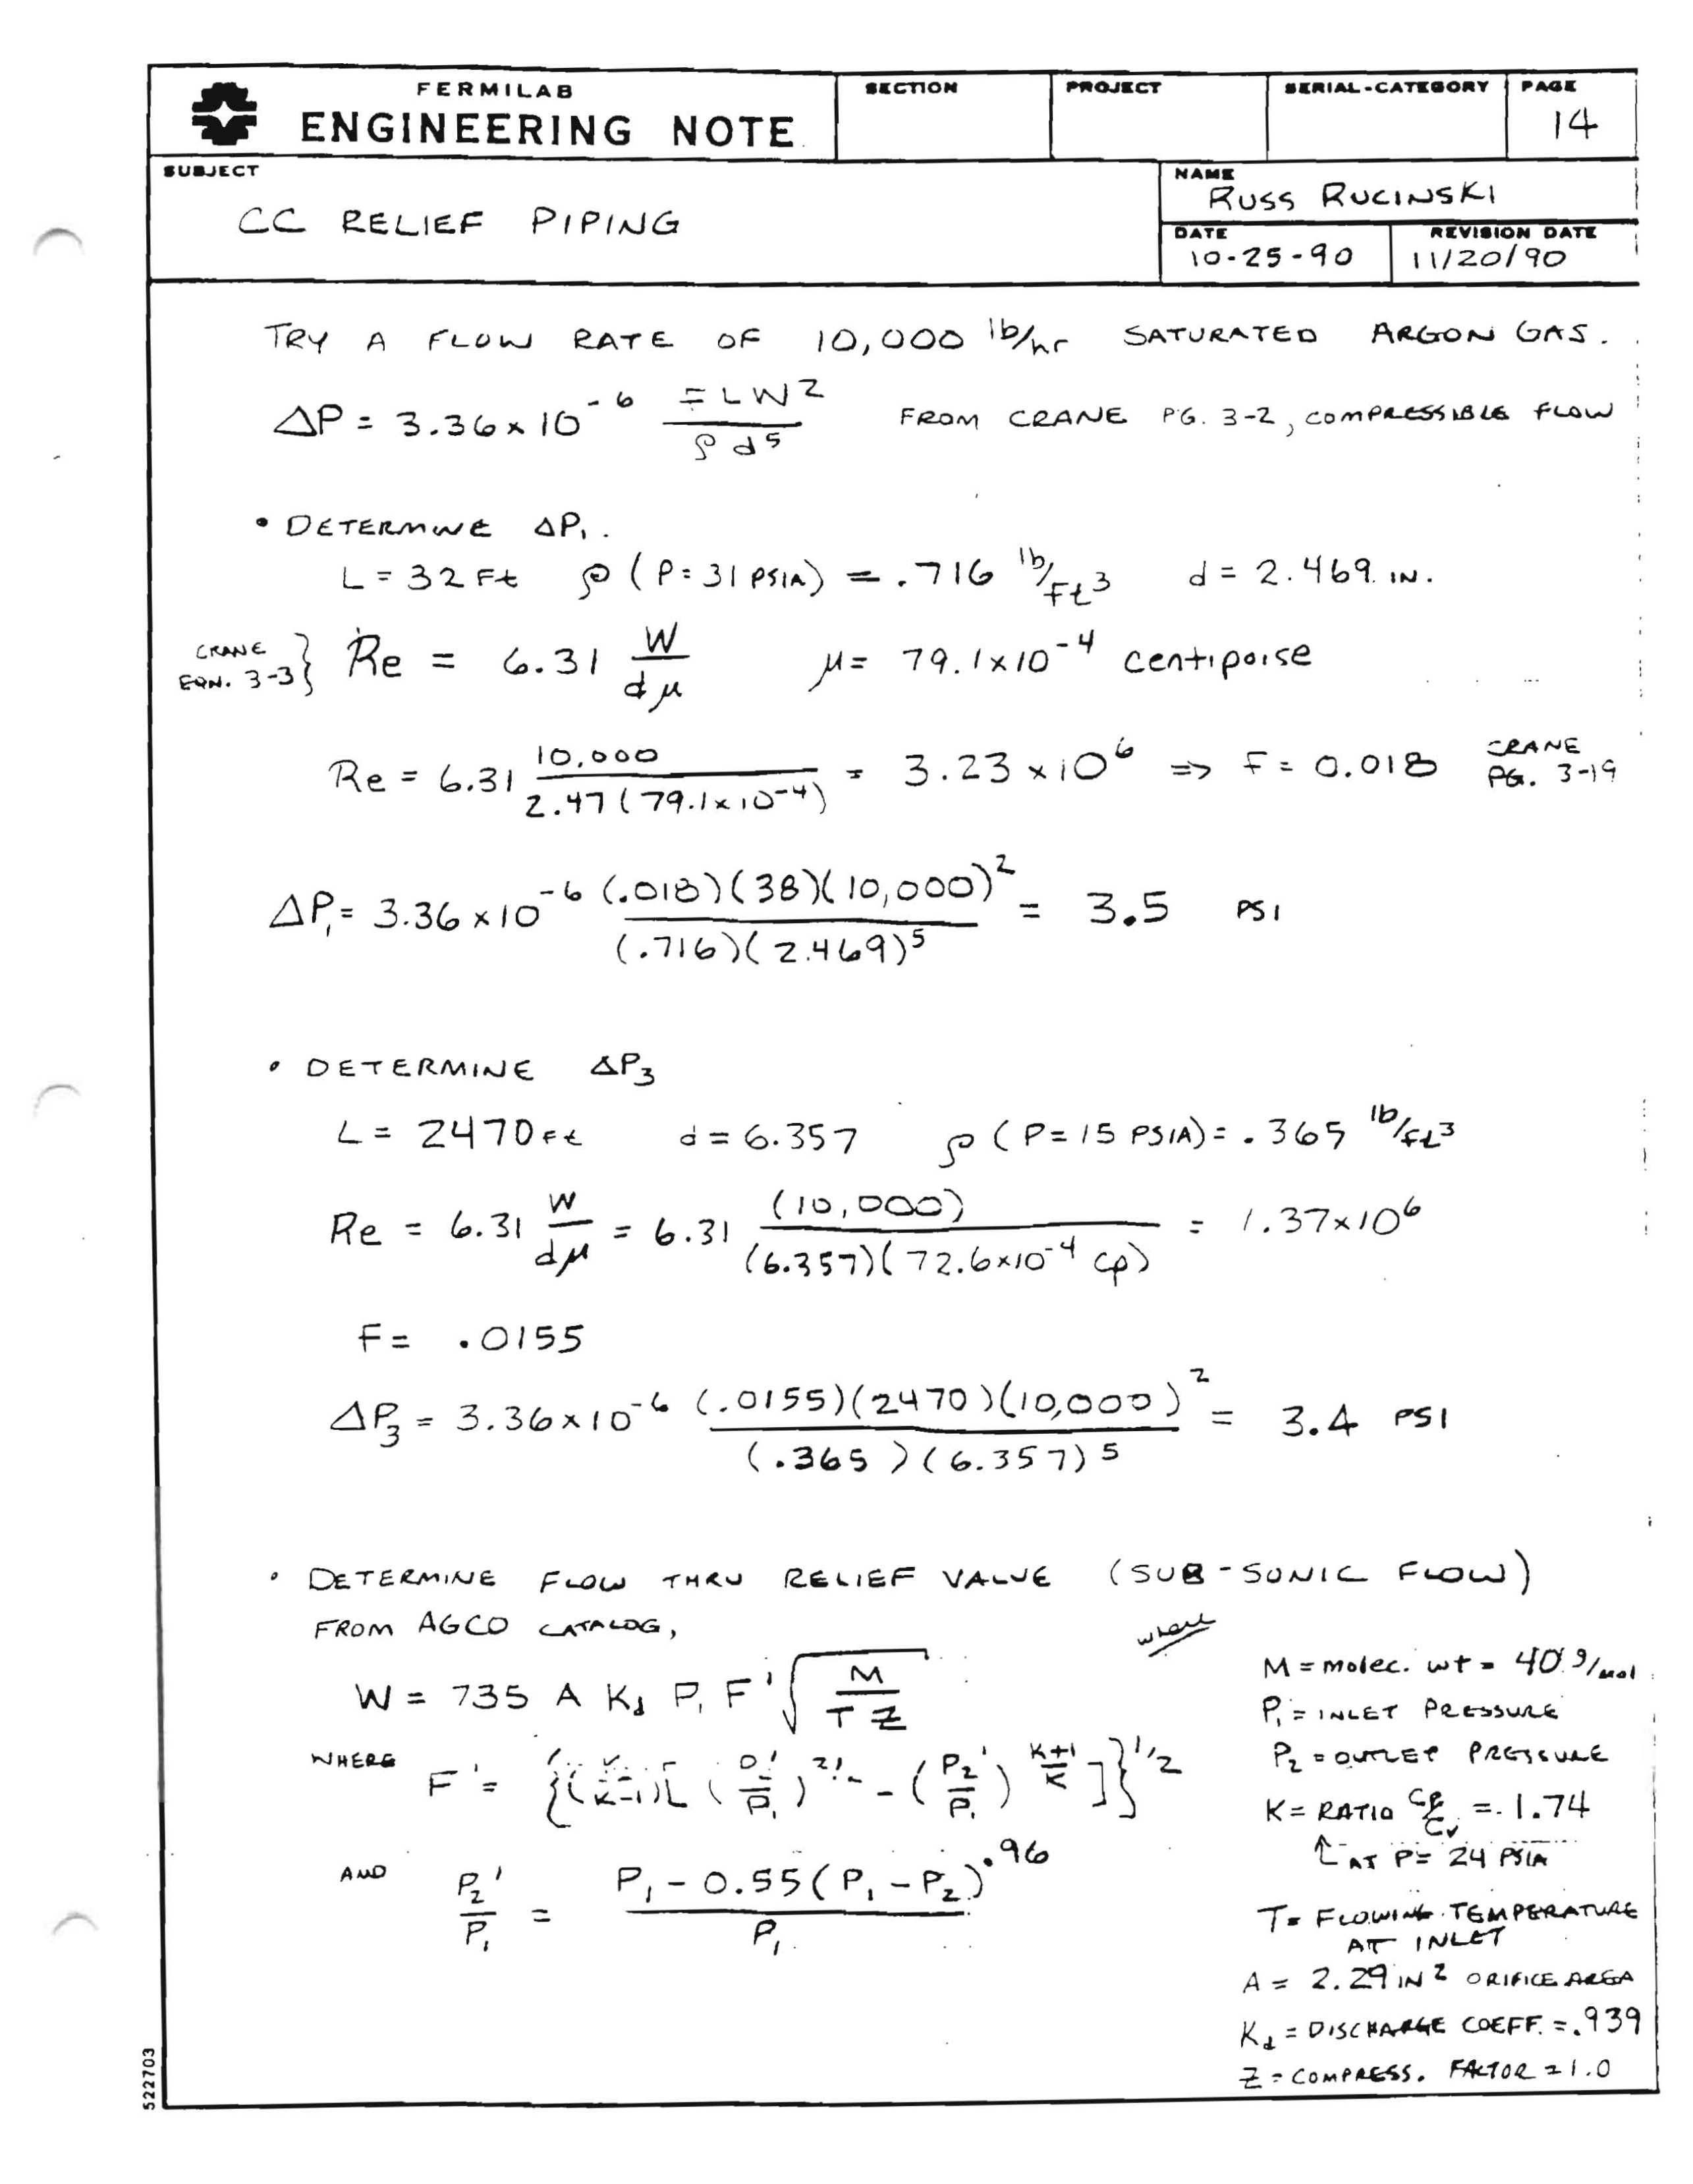 FERMILAB
ENGINEERING NOTE
SECTION
PROJECT
SERIAL-CATEGORY
PAGE
14
SUBJECT
CC RELIEF PIPING
NAME
RUSS RUCINSKI
DATE
10-25-90
REVISION DATE
11/20/90
TRY A FLOW RATE OF 10,000 lb/hr SATURATED ARGON GAS.
ΔP = 3.36 x 10^-6 FLW^2 / ρ d^5 FROM CRANE PG. 3-2, COMPRESSIBLE FLOW
• DETERMINE ΔP₁.
L = 32 Ft ρ (P = 31 PSIA) = .716 lb/Ft^3 d = 2.469 IN.
CRANE EQN. 3-3 } Re = 6.31 W / dμ μ = 79.1 x 10^-4 centipoise
Re = 6.31 10,000 / 2.47 (79.1 x 10^-4) = 3.23 x 10^6 ⇒ F = 0.018 CRANE PG. 3-19
ΔP₁ = 3.36 x 10^-6 (.018)(38)(10,000)^2 / (.716)(2.469)^5 = 3.5 PSI
• DETERMINE ΔP₃
L = 2470 Ft d = 6.357 ρ (P = 15 PSIA) = .365 lb/ft^3
Re = 6.31 W / dμ = 6.31 (10,000) / (6.357)(72.6x10^-4 cp) = 1.37x10^6
F = .0155
ΔP₃ = 3.36 x 10^-6 (.0155)(2470)(10,000)^2 / (.365)(6.357)^5 = 3.4 PSI
• DETERMINE FLOW THRU RELIEF VALVE (SUB-SONIC FLOW)
FROM AGCO CATALOG,
where
W = 735 A K_d P₁ F' √(M / T Z)
WHERE F' = {(K/K-1)[(P₂'/P₁)^2/K - (P₂'/P₁)^K+1/K]}^1/2
AND P₂'/P₁ = P₁ - 0.55 (P₁ - P₂)^.96 / P₁
M = molec. wt = 40 g/mol
P₁ = INLET PRESSURE
P₂ = OUTLET PRESSURE
K = RATIO Cp/Cv = 1.74
↑ AT P = 24 PSIA
T = FLOWING TEMPERATURE
AT INLET
A = 2.29 IN^2 ORIFICE AREA
K_d = DISCHARGE COEFF. = .939
Z = COMPRESS. FACTOR = 1.0
522703